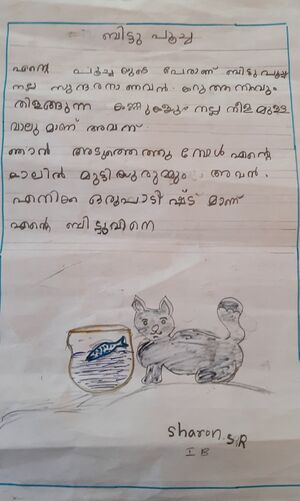 ബിട്ടു പൂച്ച
എന്റെ പൂച്ചയുടെ പേരാണ് ബിട്ടുപൂച്ച
നല്ല സുന്ദരനാണവൻ. കറുത്തനിറവും
തിളങ്ങുന്ന കണ്ണുകളും നല്ല നീളമുള്ള
വാലുമാണ് അവന്
ഞാൻ അടുത്തെത്തുമ്പോൾ എന്റെ
കാലിൽ മുട്ടിയുരുമ്മും അവൻ.
എനിക്ക ഒരുപാടി ഷ്ട് മാണ്
എന്റെ ബിട്ടുവിനെ
Sharon S.R
I B